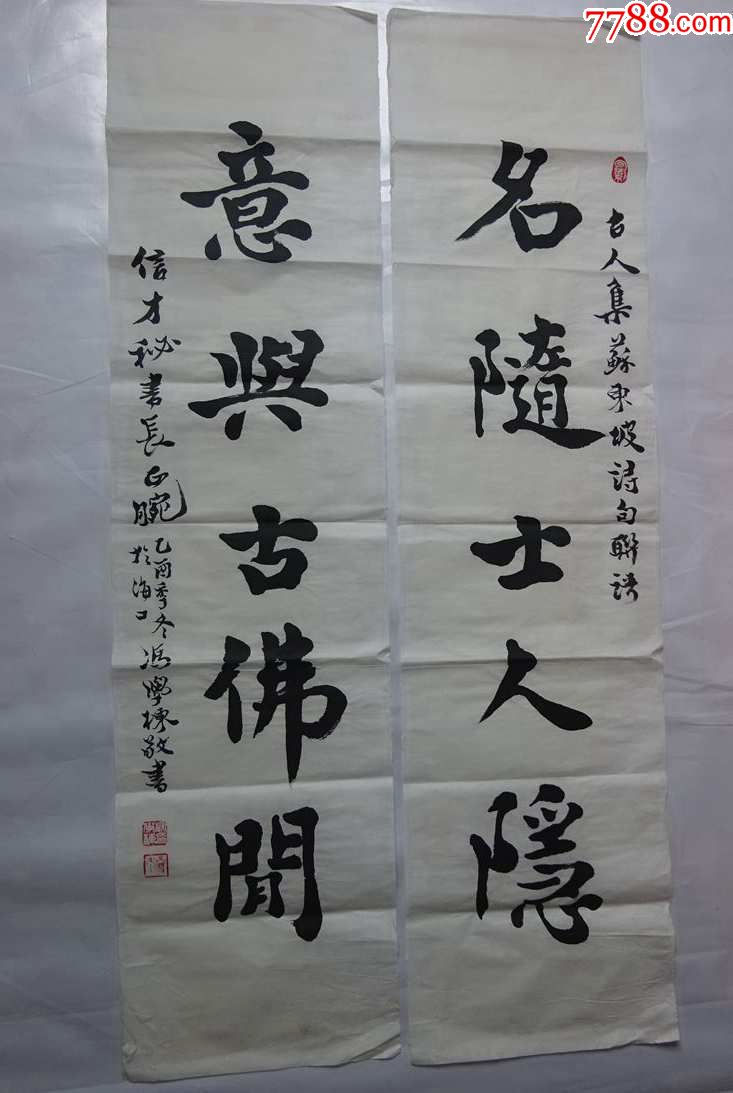 7788.com
古人集蘇東坡詩句聯語
名隨士人隱
意與古佛閒
信才秘書長正腕
乙酉季冬馮學棟敬書
於海口